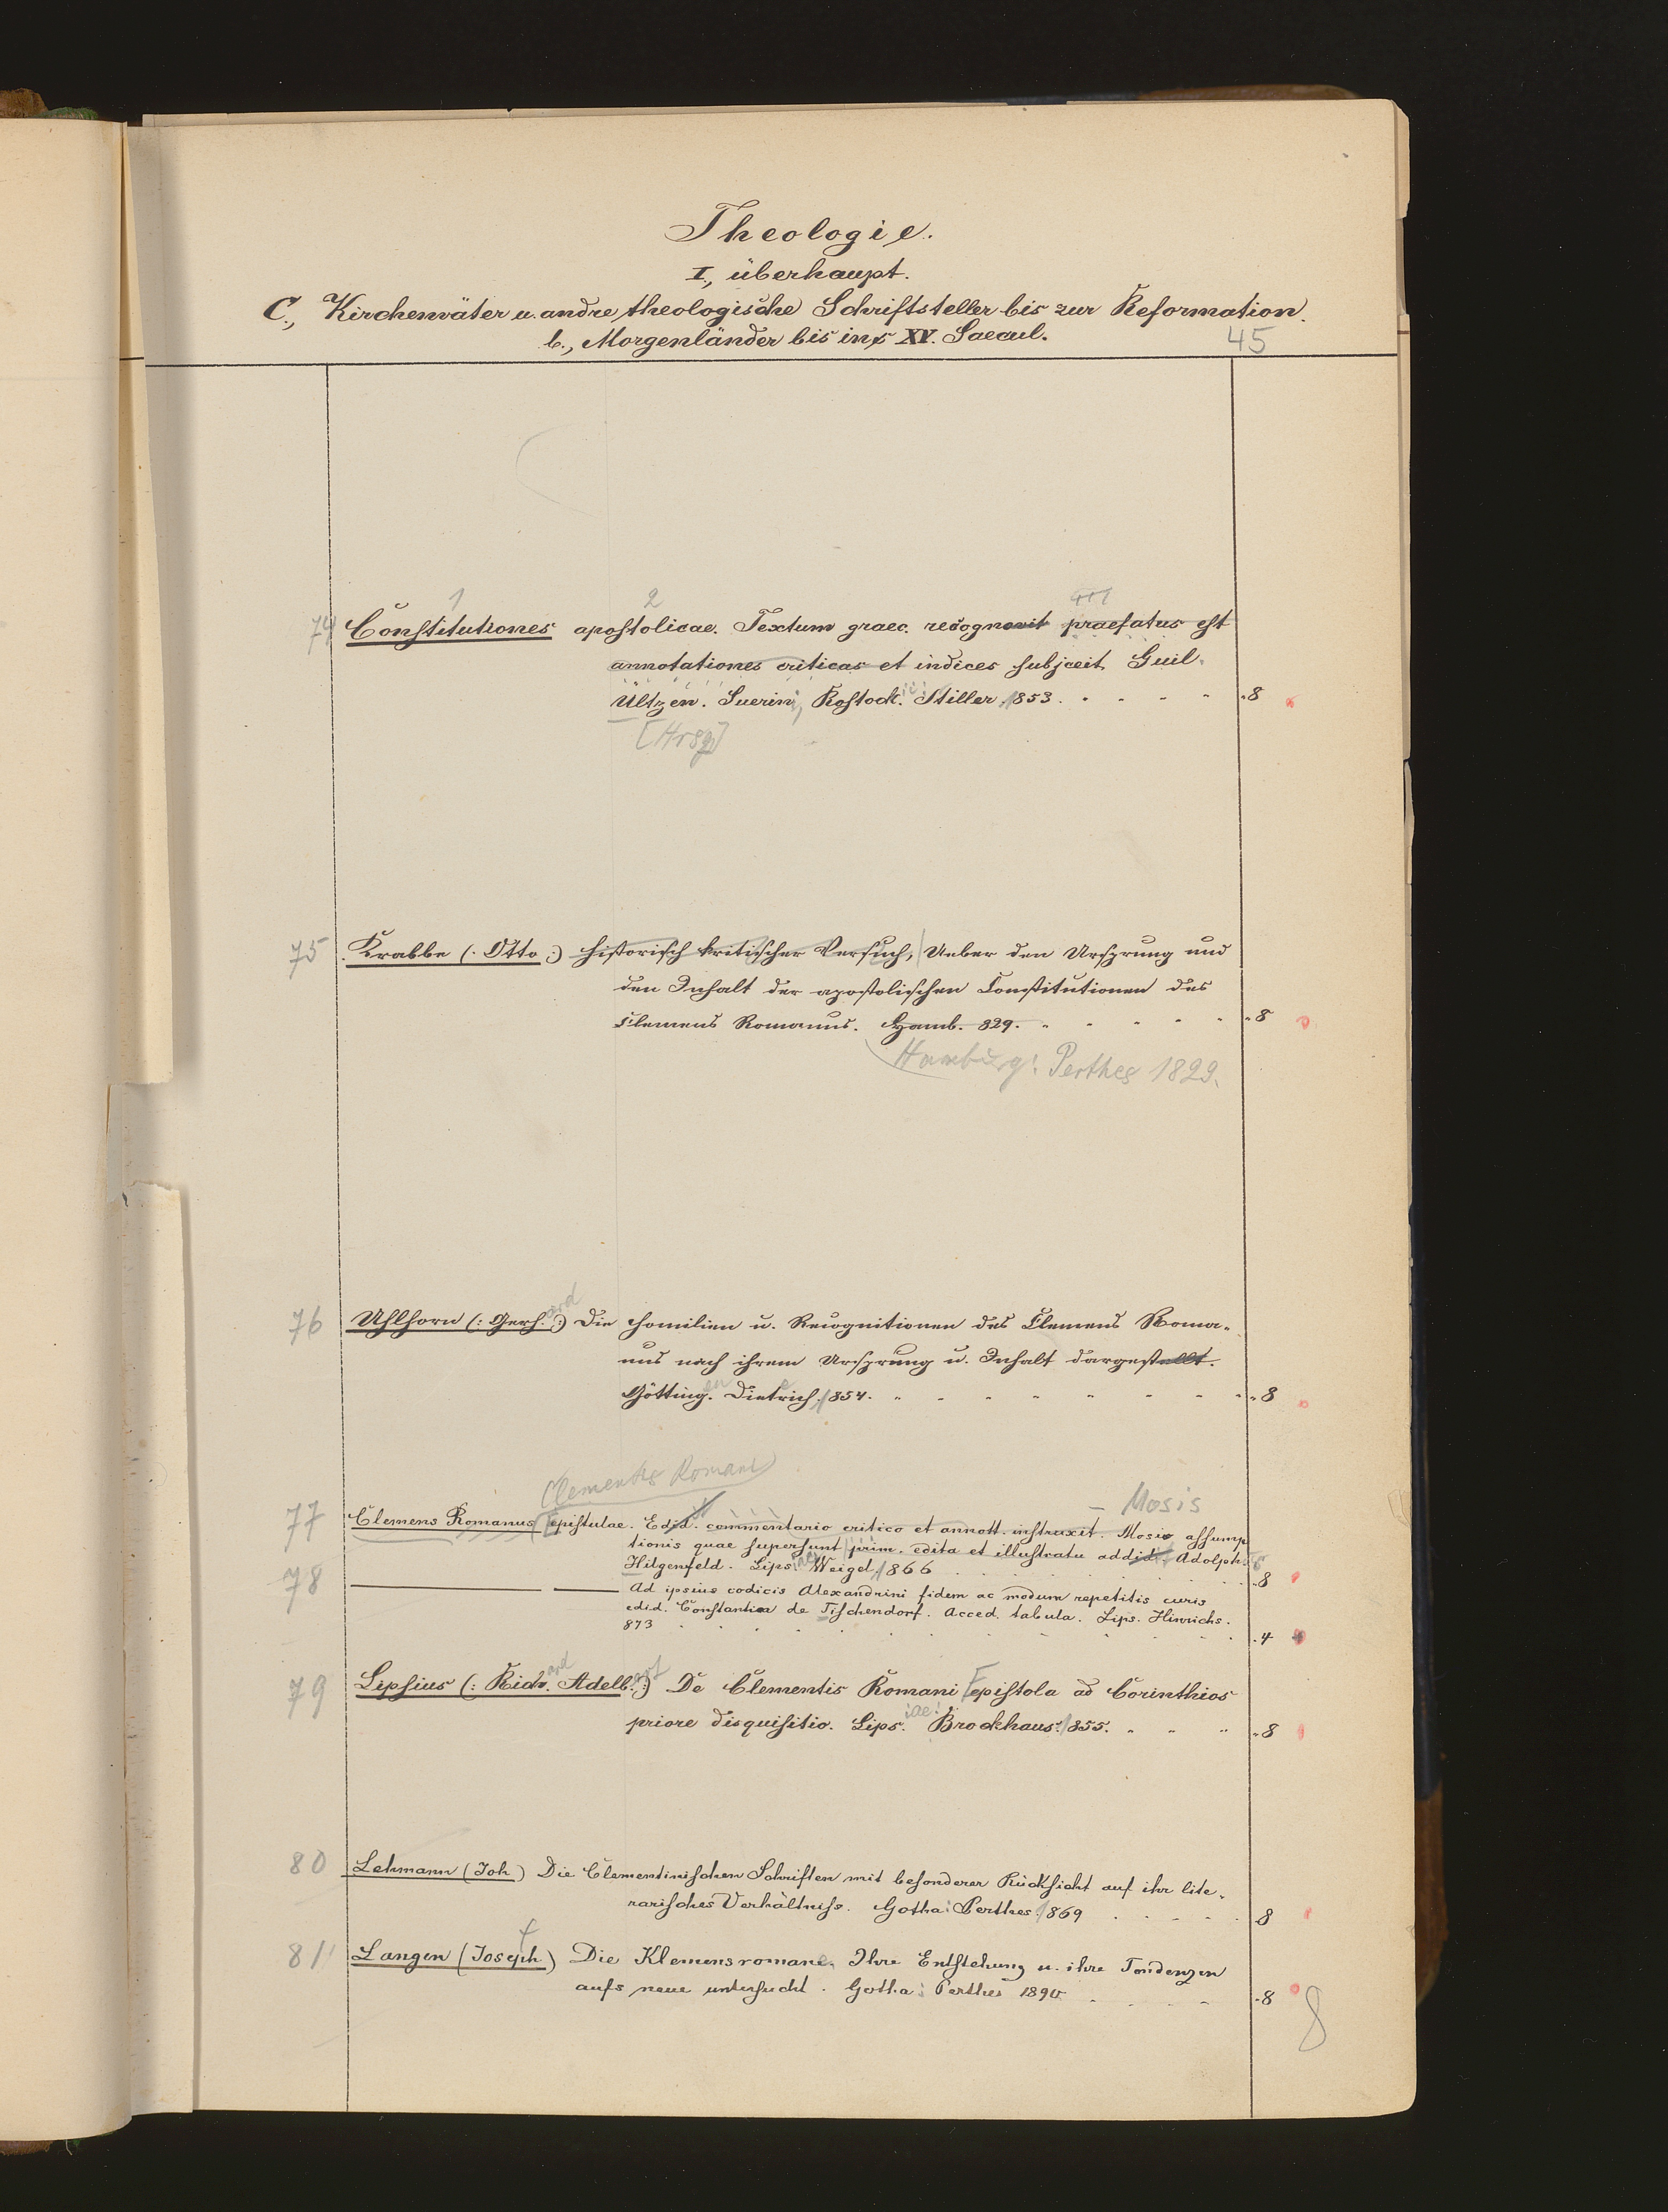 Theologie.
I., überhaupt.
C., Kirchenväter u. andre theologische Schriftsteller bis zur Reformation.
b., Morgenländer bis ins XV. Saecul.
45
1 2
74 Constitutiones apostolicae. Textum graec. recognovit praefatus est
annotationes criticas et indices subjecit Guil.
Ültzen. Suerin, Rostock. Stiller. 1853. 8
[Hrsg]
75 Krabbe (: Otto :) historisch kritischer Versuch, Ueber den Ursprung und
den Inhalt der apostolischen Constitutionen des
Clemens Romanus. Hamb. 829. 8
Hamburg: Perthes 1829.
76 Uhlhorn (: Gerhard :) Die Homilien u. Recognitionen des Clemens Roma-
nus nach ihrem Ursprung u. Inhalt dargestellt.
Göttingen. Dieterich. 1854. 8
Clementis Romani
Mosis
77 Clemens Romanus Epistulae. Edid. commentario critico et annott. instruxit. Mosis assump
tionis quae supersunt prim. edita et illustrata addid. Adolph.
Hilgenfeld. Lipsiae: Weigel, 1866 8
78 Ad ipsius codicis Alexandrini fidem ac modum repetitis curis
edid. Constantin de Tischendorf. Acced. tabula. Lips. Hinrichs.
873 4
79 Lipsius (: Richard Adelbert :) De Clementis Romani Epistola ad Corinthios
priore disquisitio. Lipsiae: Brockhaus. 1855. 8
80 Lehmann (Joh) Die Clementinischen Schriften mit besonderer Rücksicht auf ihr lite-
rarisches Verhältniss. Gotha: Perthes. 1869 8
81 Langen (Joseph) Die Klemensromane. Ihre Entstehung u. ihre Tendenzen
aufs neue untersucht. Gotha: Perthes 1890 8
8